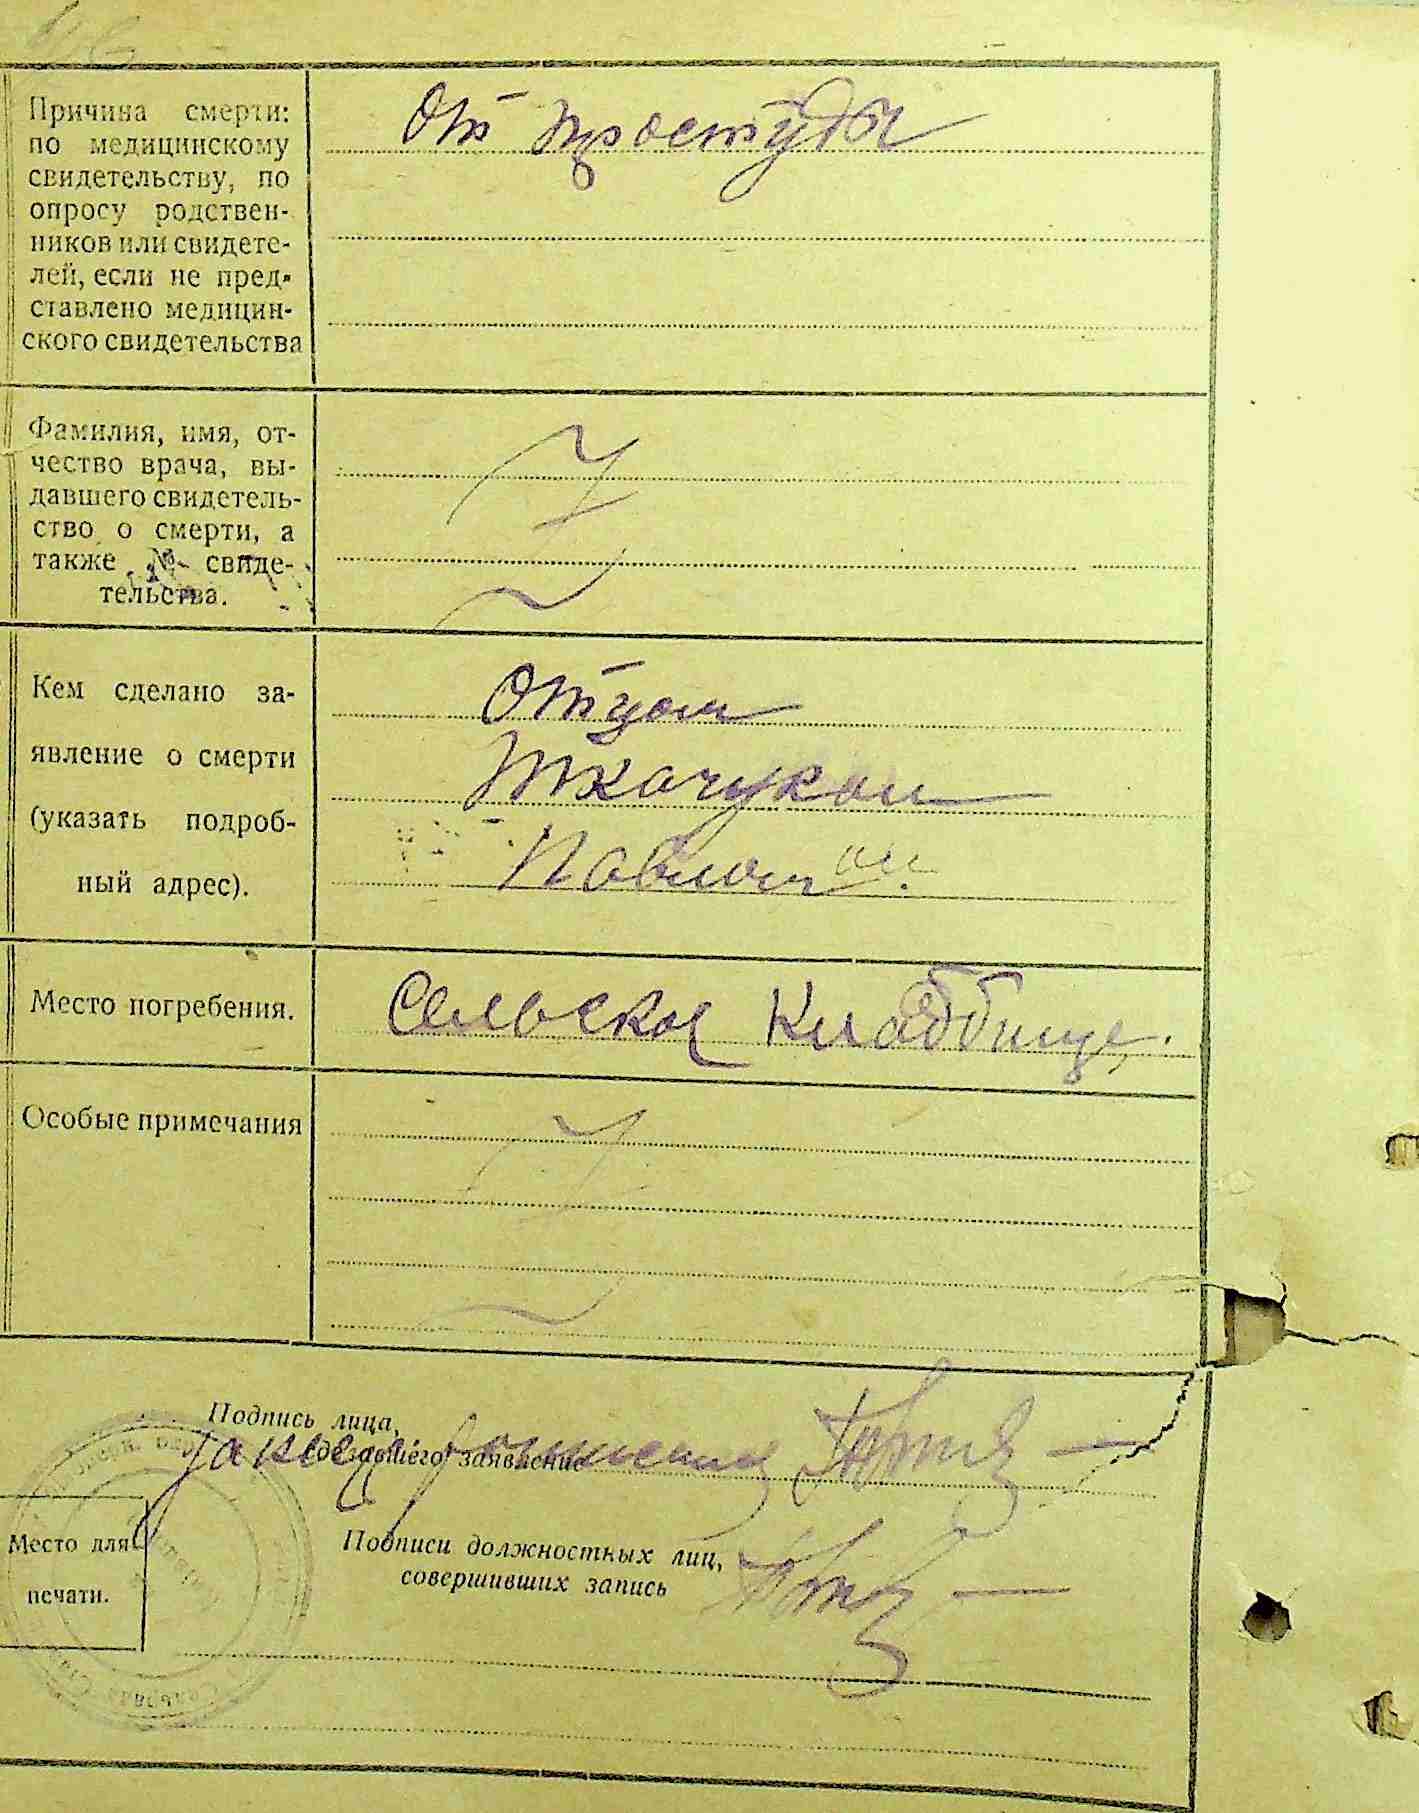 Причина смерти:
по медицинскому
свидетельству, по
опросу родствен-
ников или свидете-
лей, если не пред-
ставлено медицин-
ского свидетельства
От простуды
Фамилия, имя, от-
чество врача, вы-
давшего свидетель-
ство о смерти, а
также № свиде-
тельства.
Кем сделано за-
явление о смерти
(указать подроб-
ный адрес).
Отцом
Ткачуком
Павлом
Место погребения.
Сельское Кладбище.
Особые примечания
Подпись лица,
сделавшего заявление
Место для
печати.
Подписи должностных лиц,
совершивших запись